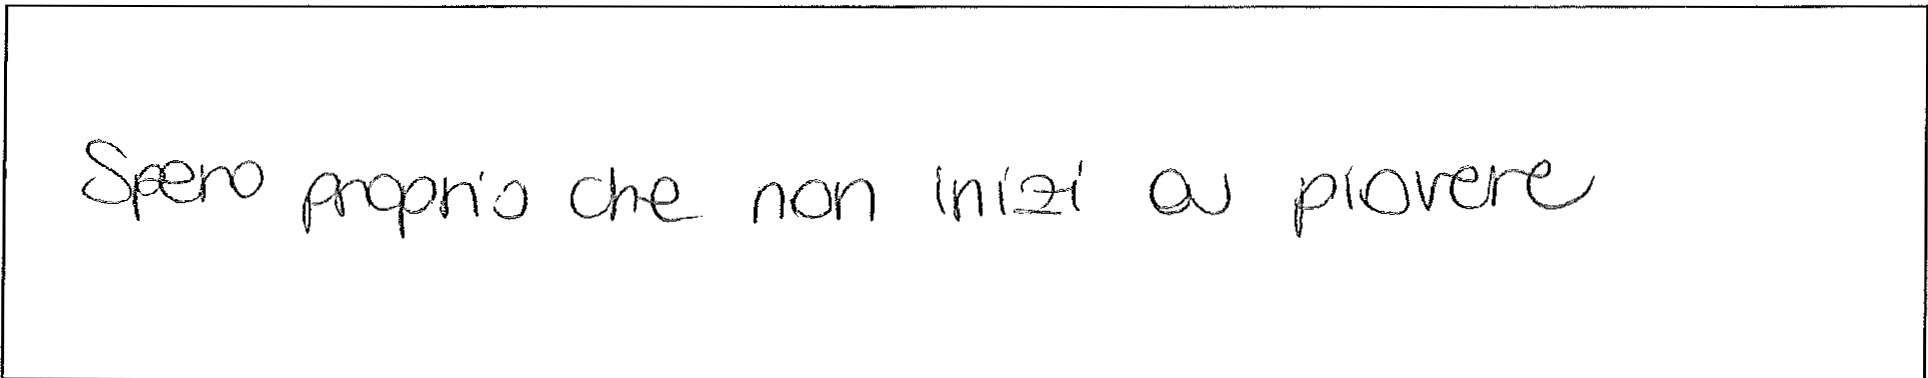 Spero proprio che non inizi a piovere